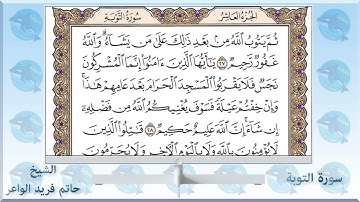 الجزء العاشر
سورة التوبة
ثُمَّ يَتُوبُ اللَّهُ مِنۢ بَعْدِ ذَٰلِكَ عَلَىٰ مَن يَشَاءُ ۗ وَاللَّهُ
غَفُورٌ رَّحِيمٌ ٢٧ يَا أَيُّهَا الَّذِينَ ءَامَنُوا إِنَّمَا الْمُشْرِكُونَ
نَجَسٌ فَلَا يَقْرَبُوا الْمَسْجِدَ الْحَرَامَ بَعْدَ عَامِهِمْ هَٰذَا ۚ
وَإِنْ خِفْتُمْ عَيْلَةً فَسَوْفَ يُغْنِيكُمُ اللَّهُ مِن فَضْلِهِ
إِن شَاءَ ۚ إِنَّ اللَّهَ عَلِيمٌ حَكِيمٌ ٢٨ قَاتِلُوا الَّذِينَ
لَا يُؤْمِنُونَ بِاللَّهِ وَلَا بِالْيَوْمِ الْآخِرِ وَلَا يُحَرِّمُونَ
سورة التوبة
الشيخ
حاتم فريد الواعر